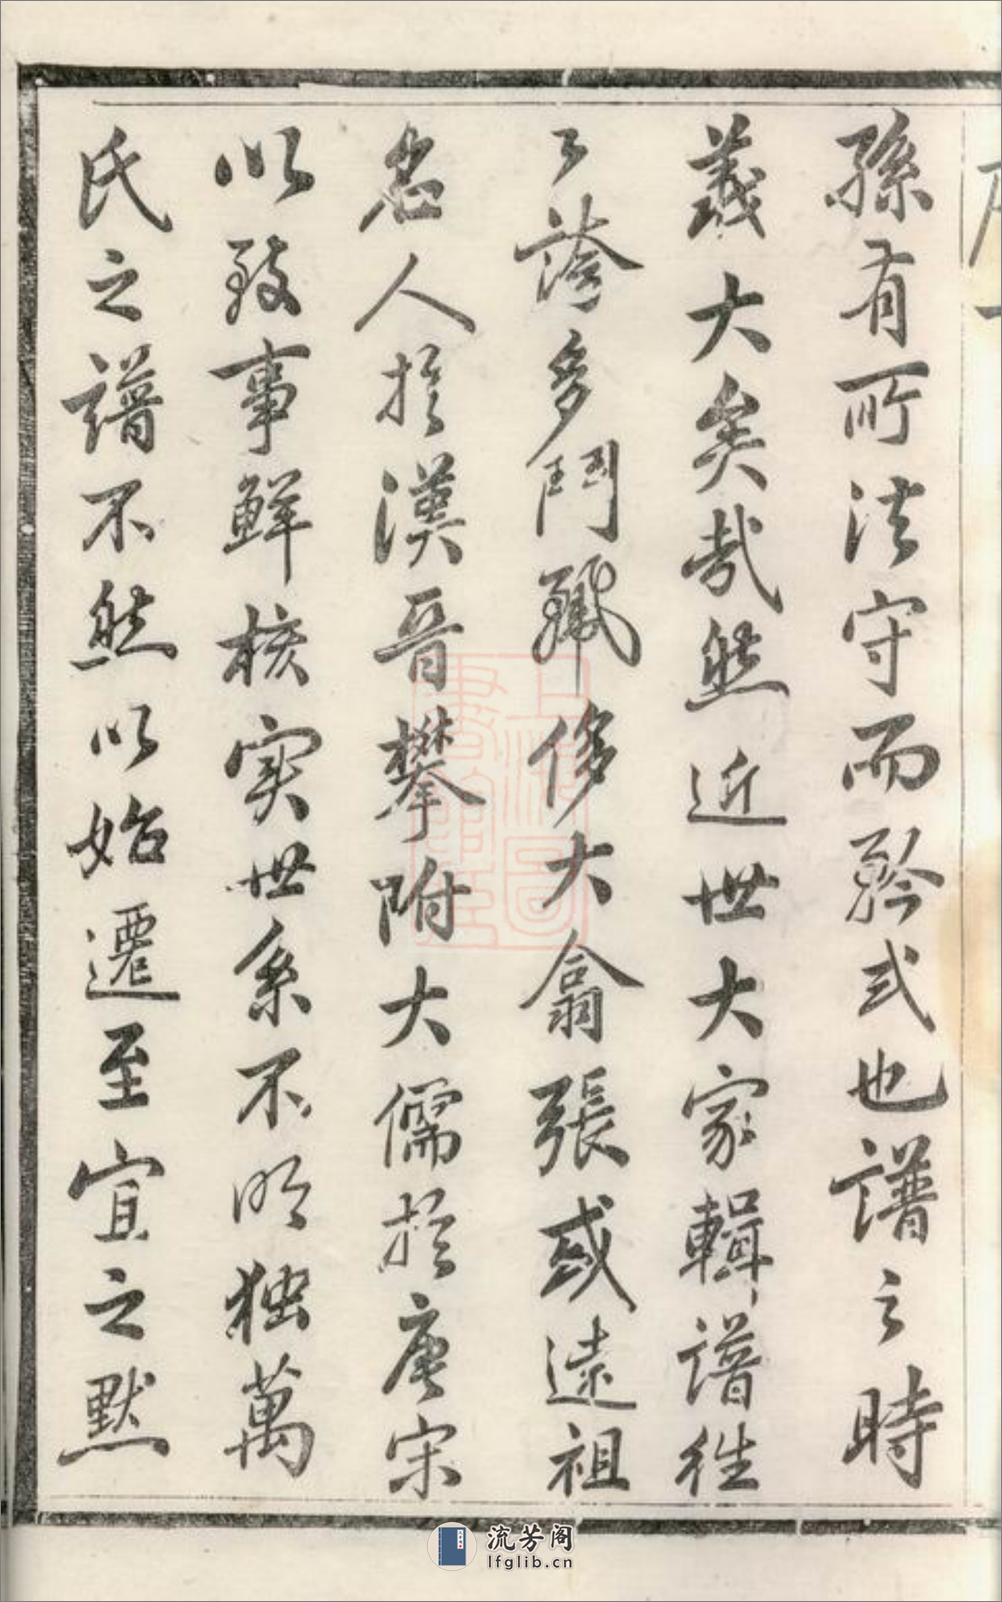 孫有所法守而矜式也譜之時
義大矣哉然近世大家輯譜往
々誇多鬥靡侈大翕張或遠祖
名人於漢晉攀附大儒於唐宋
以致事鮮核实世系不明独萬
氏之譜不然以始遷至宜之默
流芳阁
lfglib.cn